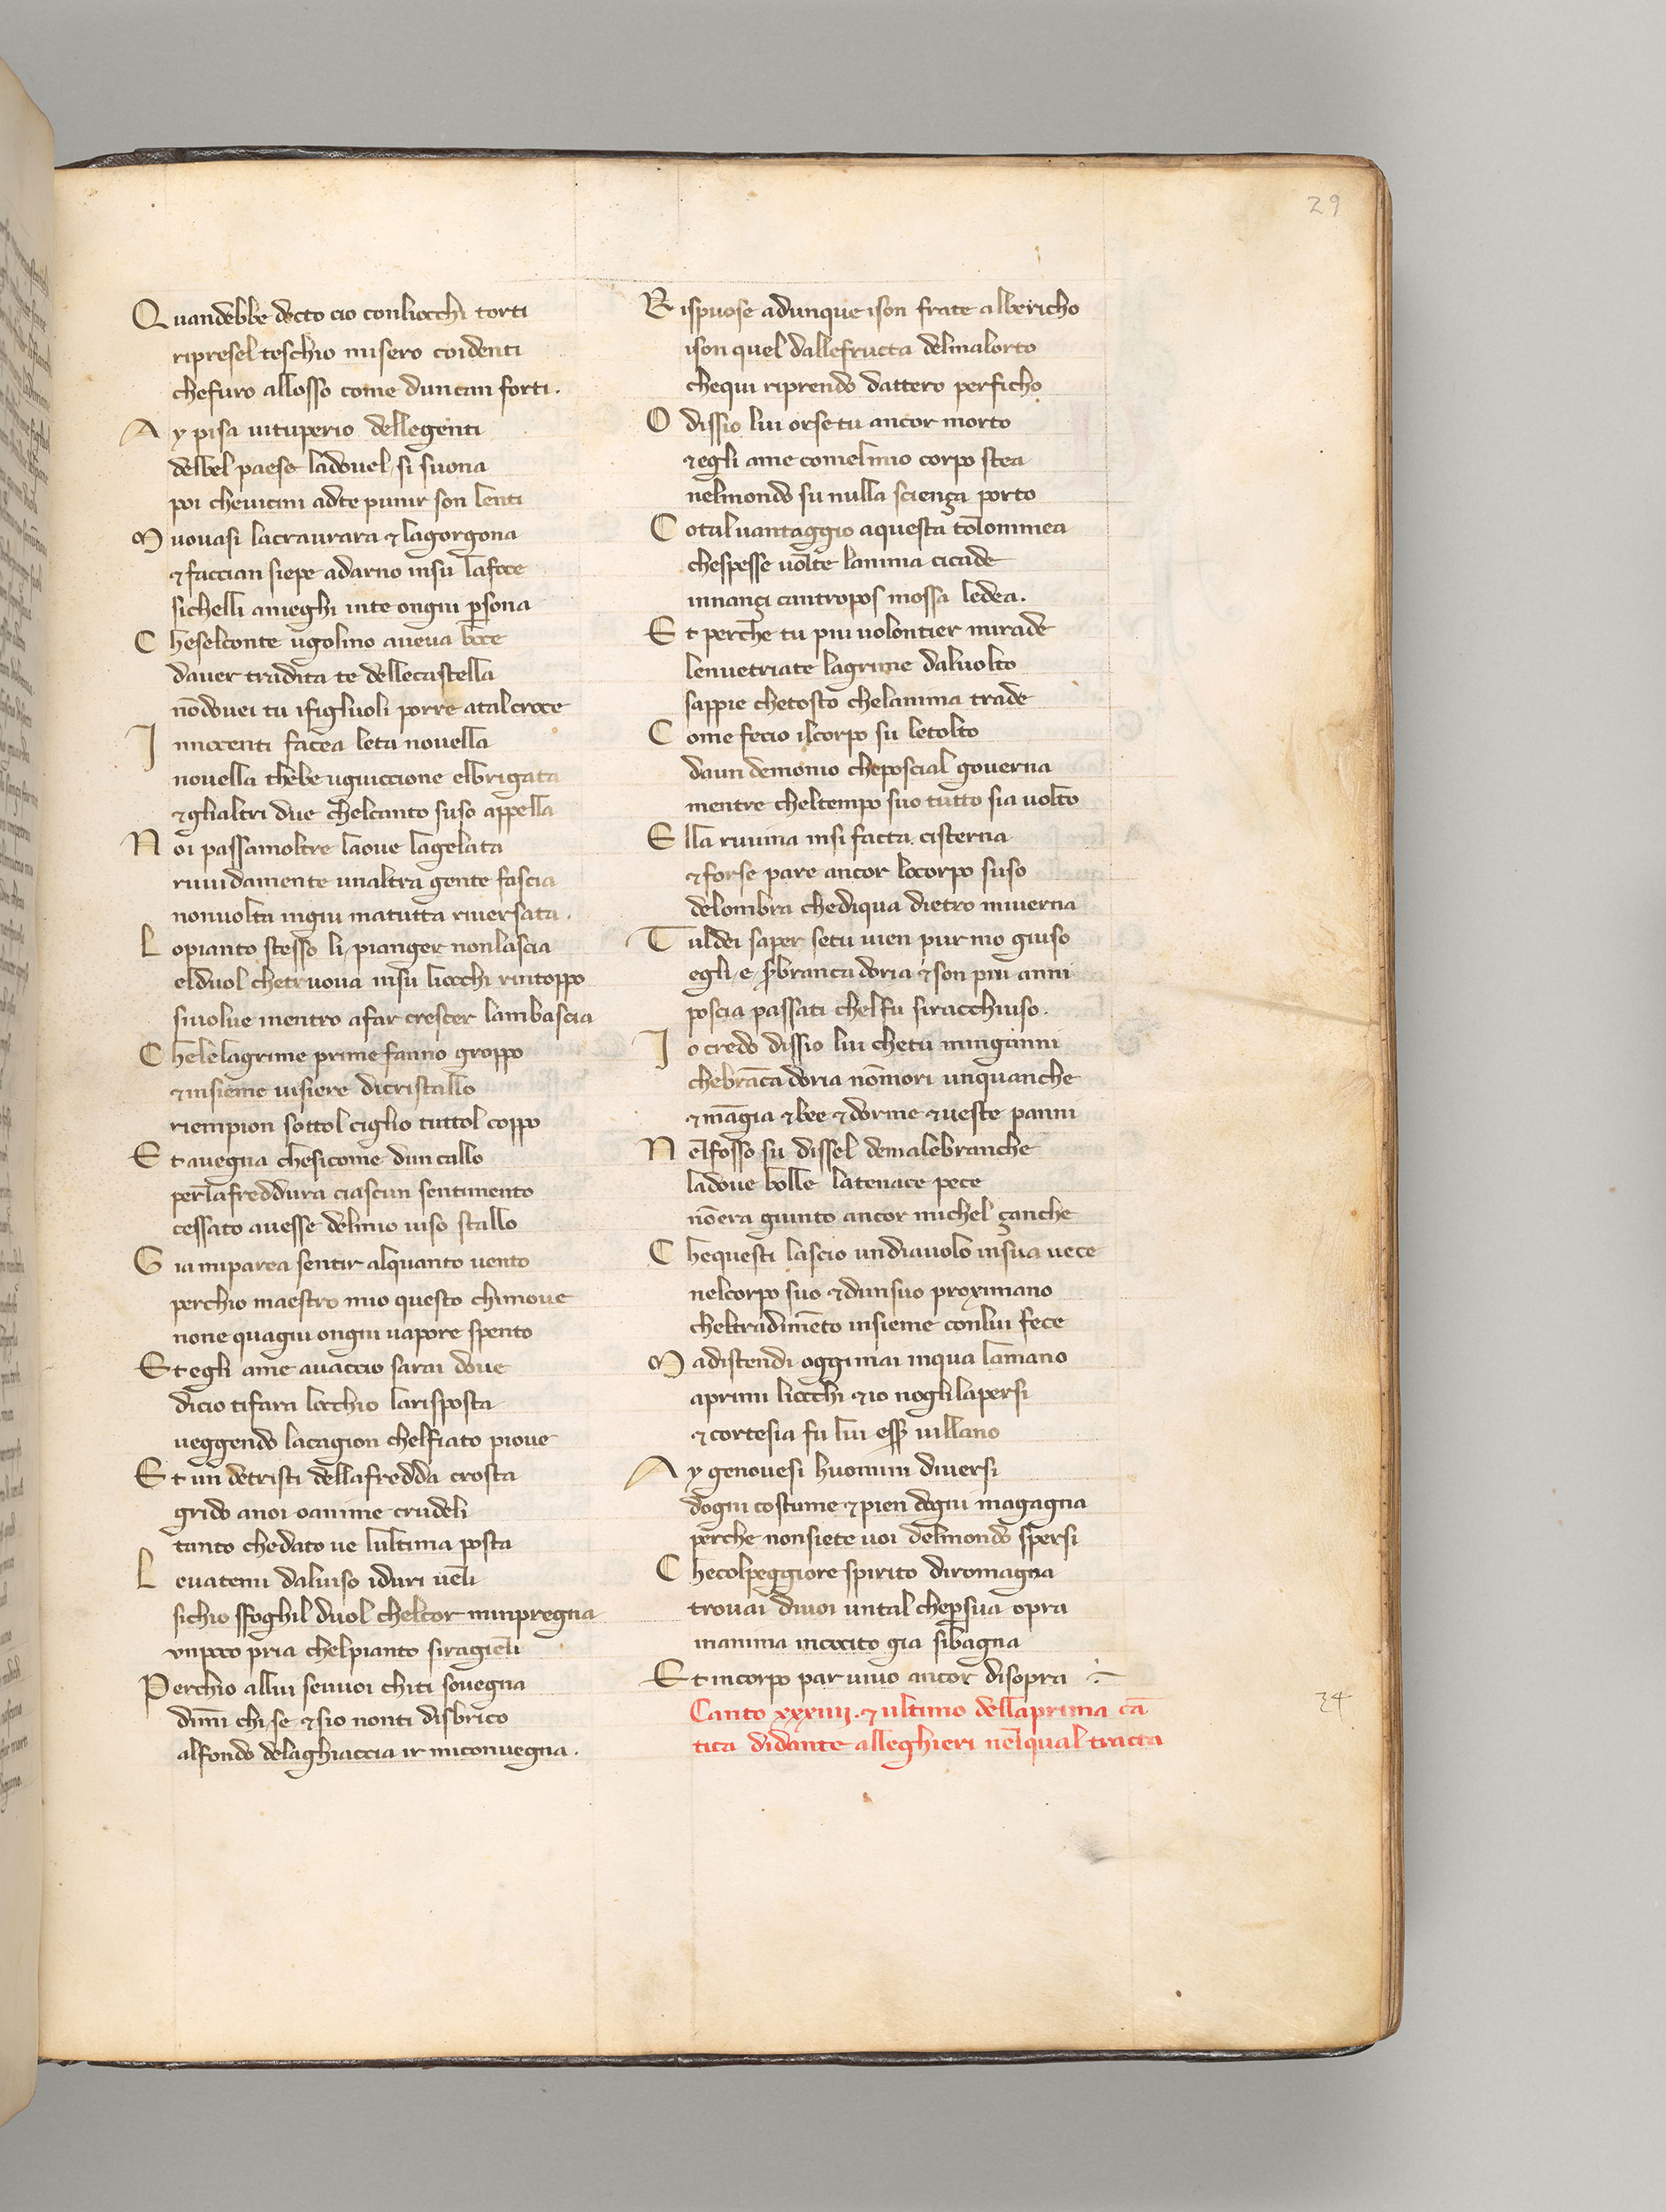 29
Quandebbe decto cio conliocchi torti
ripresel teschio misero coidenti
chefuro allosso come duncan forti.
Ay pisa uituperio dellegenti
delbel paese ladouel si suona
poi cheuicini adte punir son lenti
Muouasi lacraurara & lagorgona
& faccian siepe adarno insu lafoce
sichelli anieghi inte ongni p̲sona
Cheselconte ugolino aueua boce
dauer tradita te dellecastella
nōdouei tu ifigliuoli porre atalcroce
Innocenti facea leta nouella
nouella thebe uguiccione elbrigata
& glialtri due chelcanto suso appella
Noi passamoltre laoue lagelata
ruuidamente unaltra gente fascia
nonuolta ingiu matutta riuersata.
Lopianto stesso li pianger nonlascia
elduol chetruoua insu liocchi rintoppo
siuolue inentro afar crescer lambascia
Chelelagrime prime fanno groppo
& insieme uisiere dicristallo
riempion sottol ciglio tuttol coppo
Et auegna chesicome dun callo
perlafreddura ciascun sentimento
cessato auesse delmio uiso stallo
Gia miparea sentir alquanto uento
perchio maestro mio questo chimoue
none quagiu ongni uapore spento
Et egli ame auaccio sarai doue
dicio tifara locchio larisposta
ueggendo lacagion chelfiato pioue
Et un detristi dellafredda crosta
grido anoi oanime crudeli
tanto chedato ue lultima posta
Leuatemi daluiso iduri ueli
sichio sfoghil duol chelcor minpregna
vnpoco pria chelpianto siragieli
Perchio allui seuuoi chiti souegna
dimī chi se & sio nonti disbrico
alfondo delaghiaccia ir miconuegna.
Rispuose adunque ison frate albericho
ison quel dallefructa delmalorto
chequi riprendo dattero perficho
O dissio lui orsetu ancor morto
& egli ame comelmio corpo stea
nelmondo su nulla sciença porto
Cotaluantaggio aquesta tolommea
chespesse uolte lanima cicade
innançi cantropos mossa ledea.
Et perche tu piu uolontier mirade
lenuetriate lagrime daluolto
sappie chetosto chelanima trade
Come fecio ilcorpo su letolto
daun demonio cheposcial gouerna
mentre cheltempo suo tutto sia uolto
Ella ruuina insi facta cisterna
& forse pare ancor locorpo suso
delombra chediqua dietro miuerna
Tuldei saper setu uien pur mo giuso
egli e s̄ branca doria & son piu anni
poscia passati chelfu siracchiuso.
Io credo dissio lui chetu minganni
chebrāca doria nōmori unquanche
& māgia & bee & dorme & ueste panni
Nelfosso su dissel demalebranche
ladoue bolle latenace pece
nōera giunto ancor michel çanche
Chequesti lascio undiauolo insua uece
nelcorpo suo & dunsuo proximano
cheltradimēto insieme conlui fece
Madistendi oggimai inqua lamano
aprimi liocchi & io nogli lapersi
& cortesia fu lui ess̄ uillano
Ay genouesi huomini diuersi
dogni costume & pien dogni magagna
perche nonsiete uoi delmondo spersi
Checolpeggiore spirito diromagna
trouai diuoi untal chep̲sua opra
inanima incocito gia sibagna
Et incorpo par uiuo ancor disopra
Canto xxxiiij. & ultimo dellaprima cā
tica didante alleghieri nelqual tracta
34